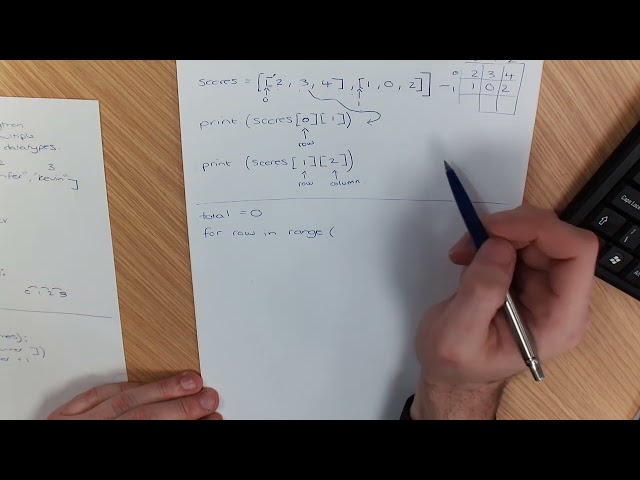 scores = [[2, 3, 4], [1, 0, 2]]
0
1
0 2 3 4
1 1 0 2
print (scores[0][1])
row
print (scores[1][2])
row column
total = 0
for row in range (
multiple
datatypes.
2 3
"kevin"]
0 1 2 3
Caps Lock